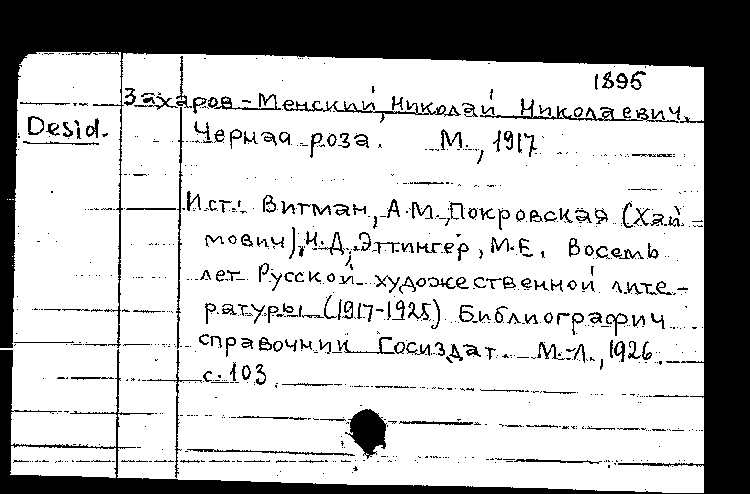 1895
Захаров-Менский, Николай Николаевич.
Desid.
Черная роза. М., 1917
Ист.: Витман, А.М., Покровская (Хай-
мович), Н.Д, Эттингер, М.Е. Восемь
лет Русской художественной лите-
ратуры (1917-1925) Библиографич
справочник Госиздат. М.-Л., 1926.
с. 103.